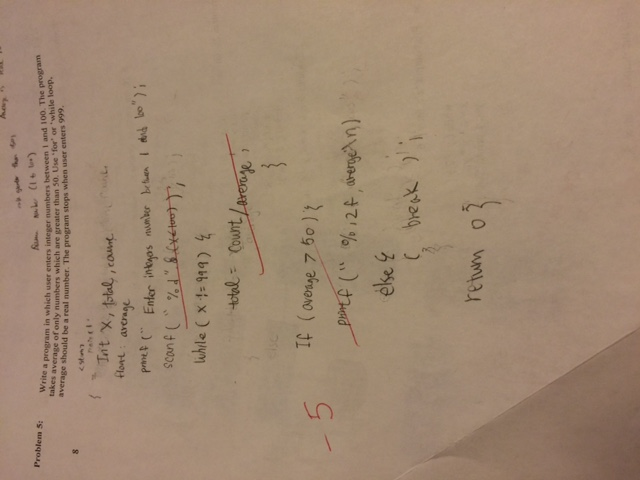 Problem 5:
Write a program in which user enters integer numbers between 1 and 100. The program
takes average of only numbers which are greater than 50. Use 'for' or 'while loop.
average should be a real number. The program stops when user enters 999.
8
{ Int X, total, count
float average
printf (" Enter integer number between 1 and 100");
scanf (" %d" & (x<100));
While ( x != 999) {
total = count/average;
}
If (average > 50) {
printf (" %.2f, average\n)
else {
( break ) ;
return 0 }
-5